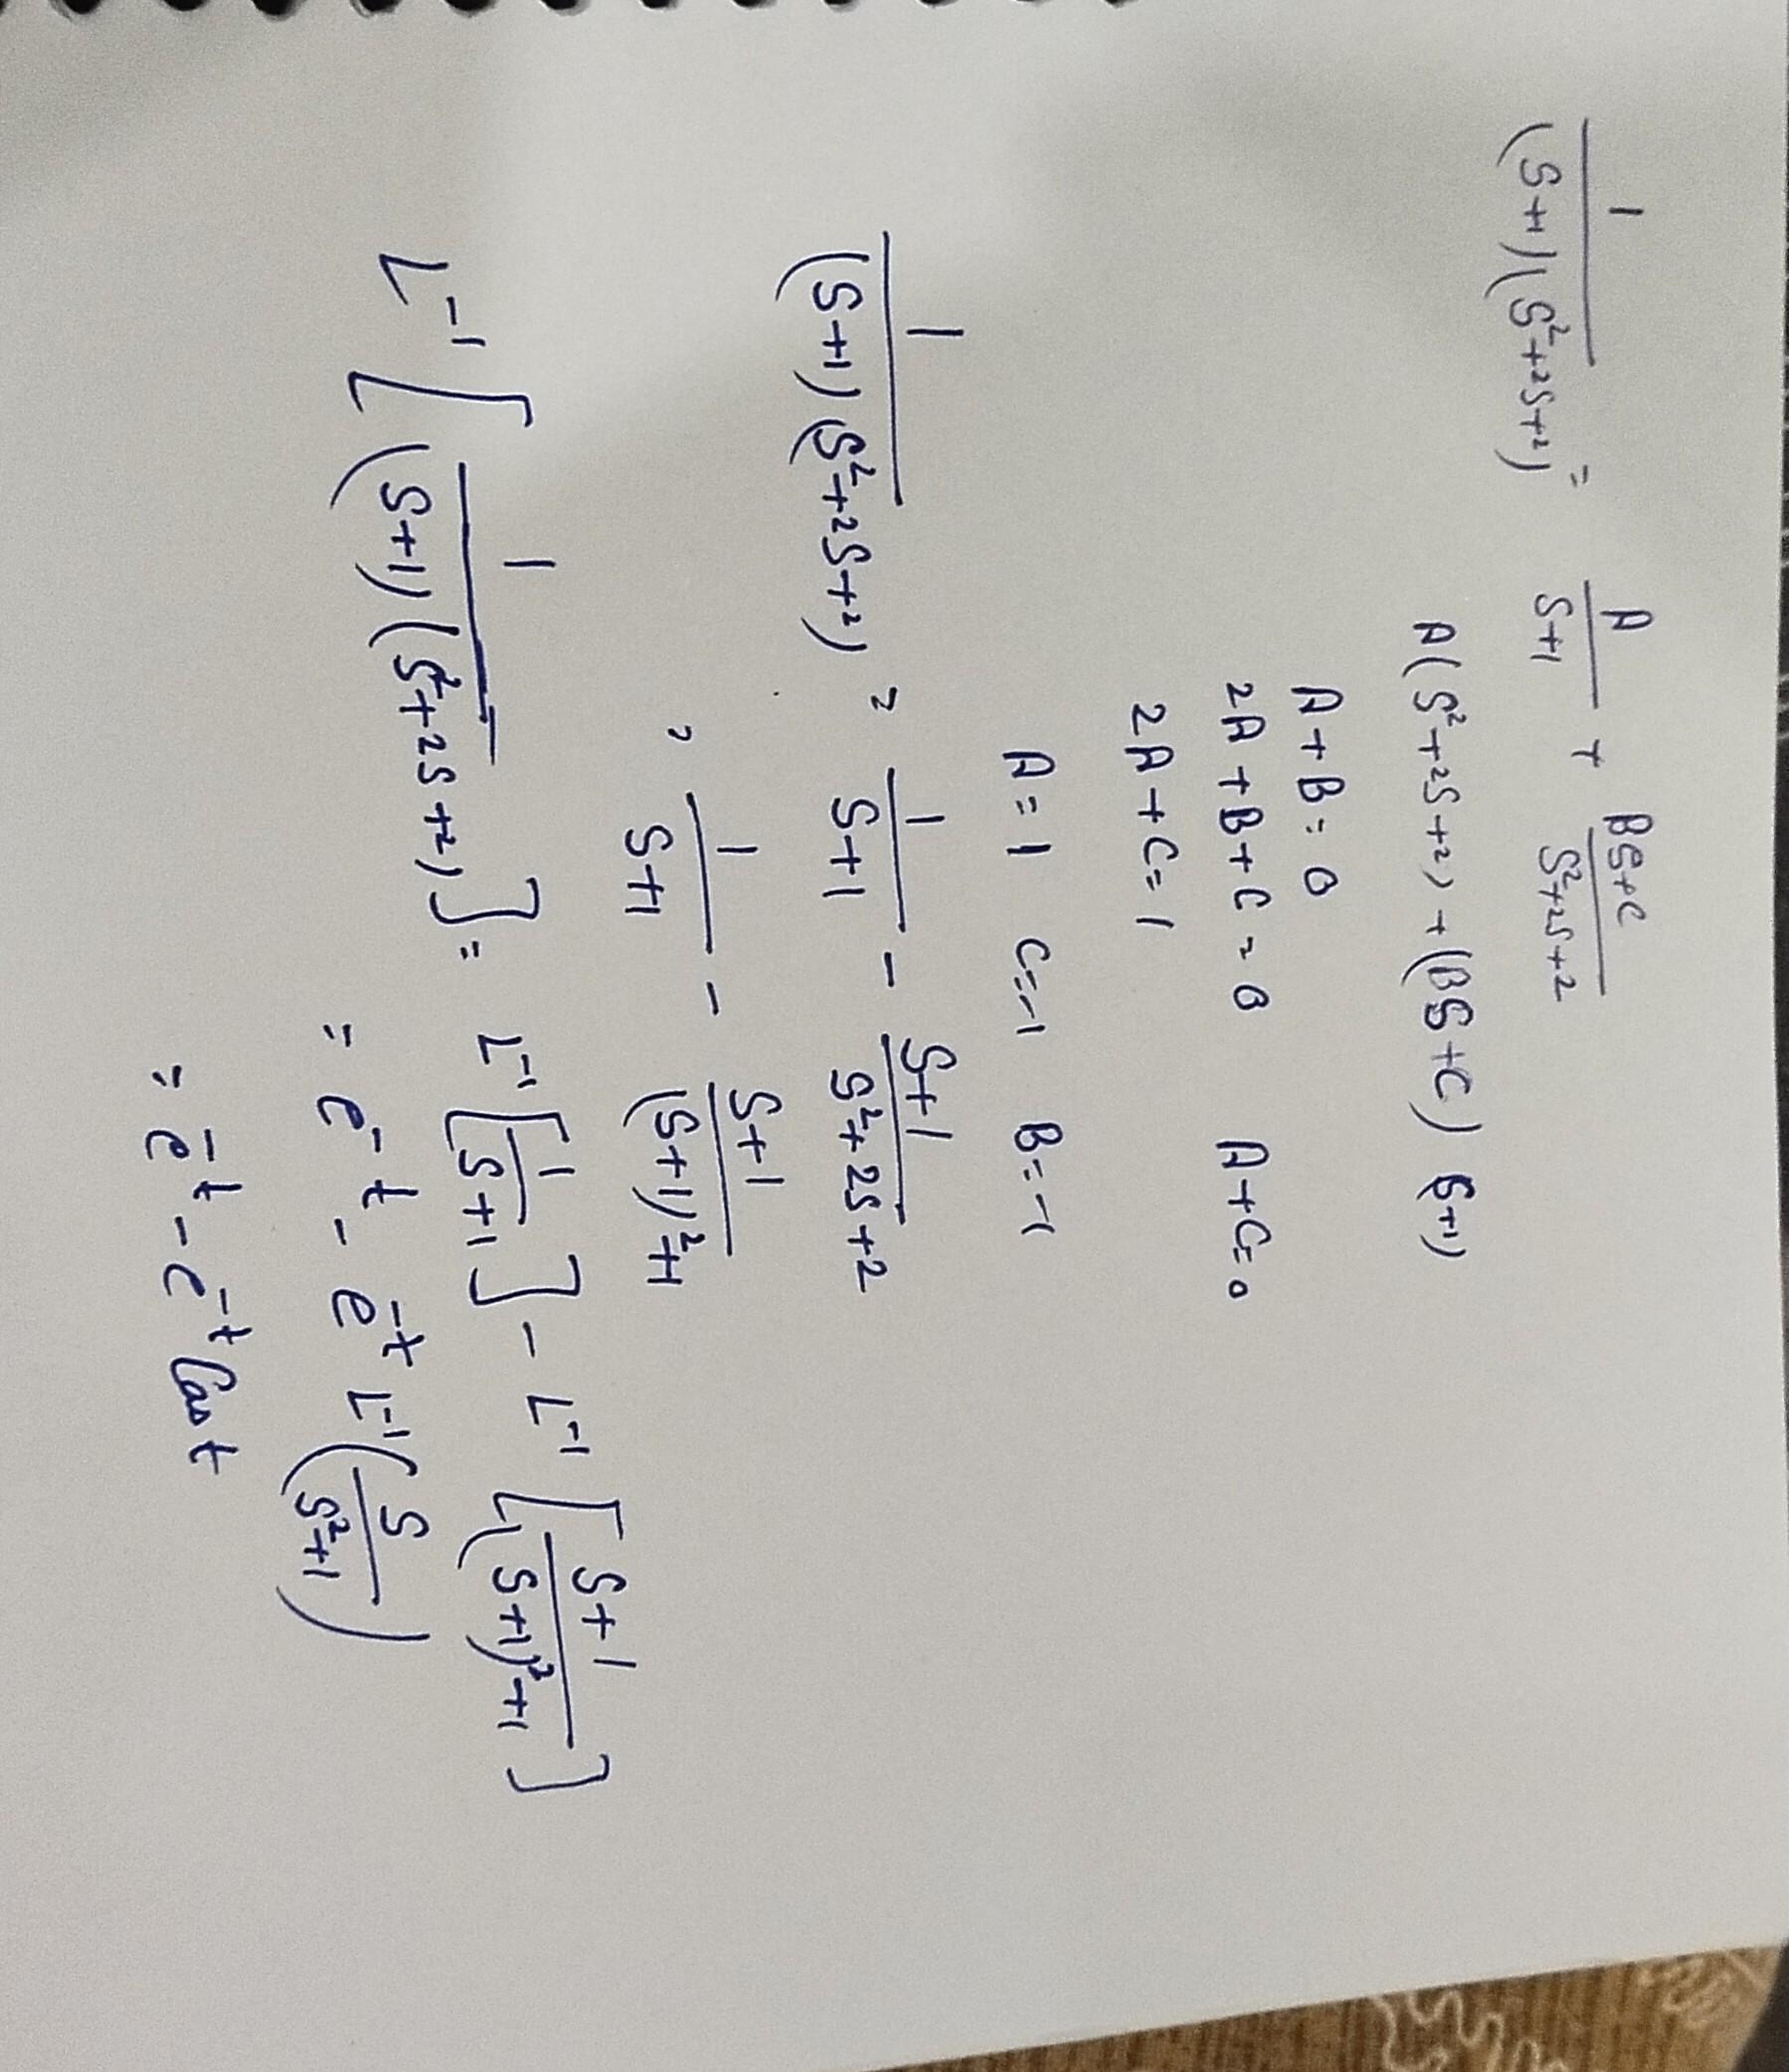 1/((S+1)(S²+2S+2)) = A/(S+1) + (BS+C)/(S²+2S+2)
A(S²+2S+2) + (BS+C)(S+1)
A+B=0
2A+B+C=0 A+C=0
2A+C=1
A=1 C=-1 B=-1
1/((S+1)(S²+2S+2)) = 1/(S+1) - (S+1)/(S²+2S+2)
= 1/(S+1) - (S+1)/((S+1)²+1)
L⁻¹[1/((S+1)(S²+2S+2))] = L⁻¹[1/(S+1)] - L⁻¹[(S+1)/((S+1)²+1)]
= e⁻ᵗ - e⁻ᵗ L⁻¹(S/(S²+1))
= e⁻ᵗ - e⁻ᵗ Cos t